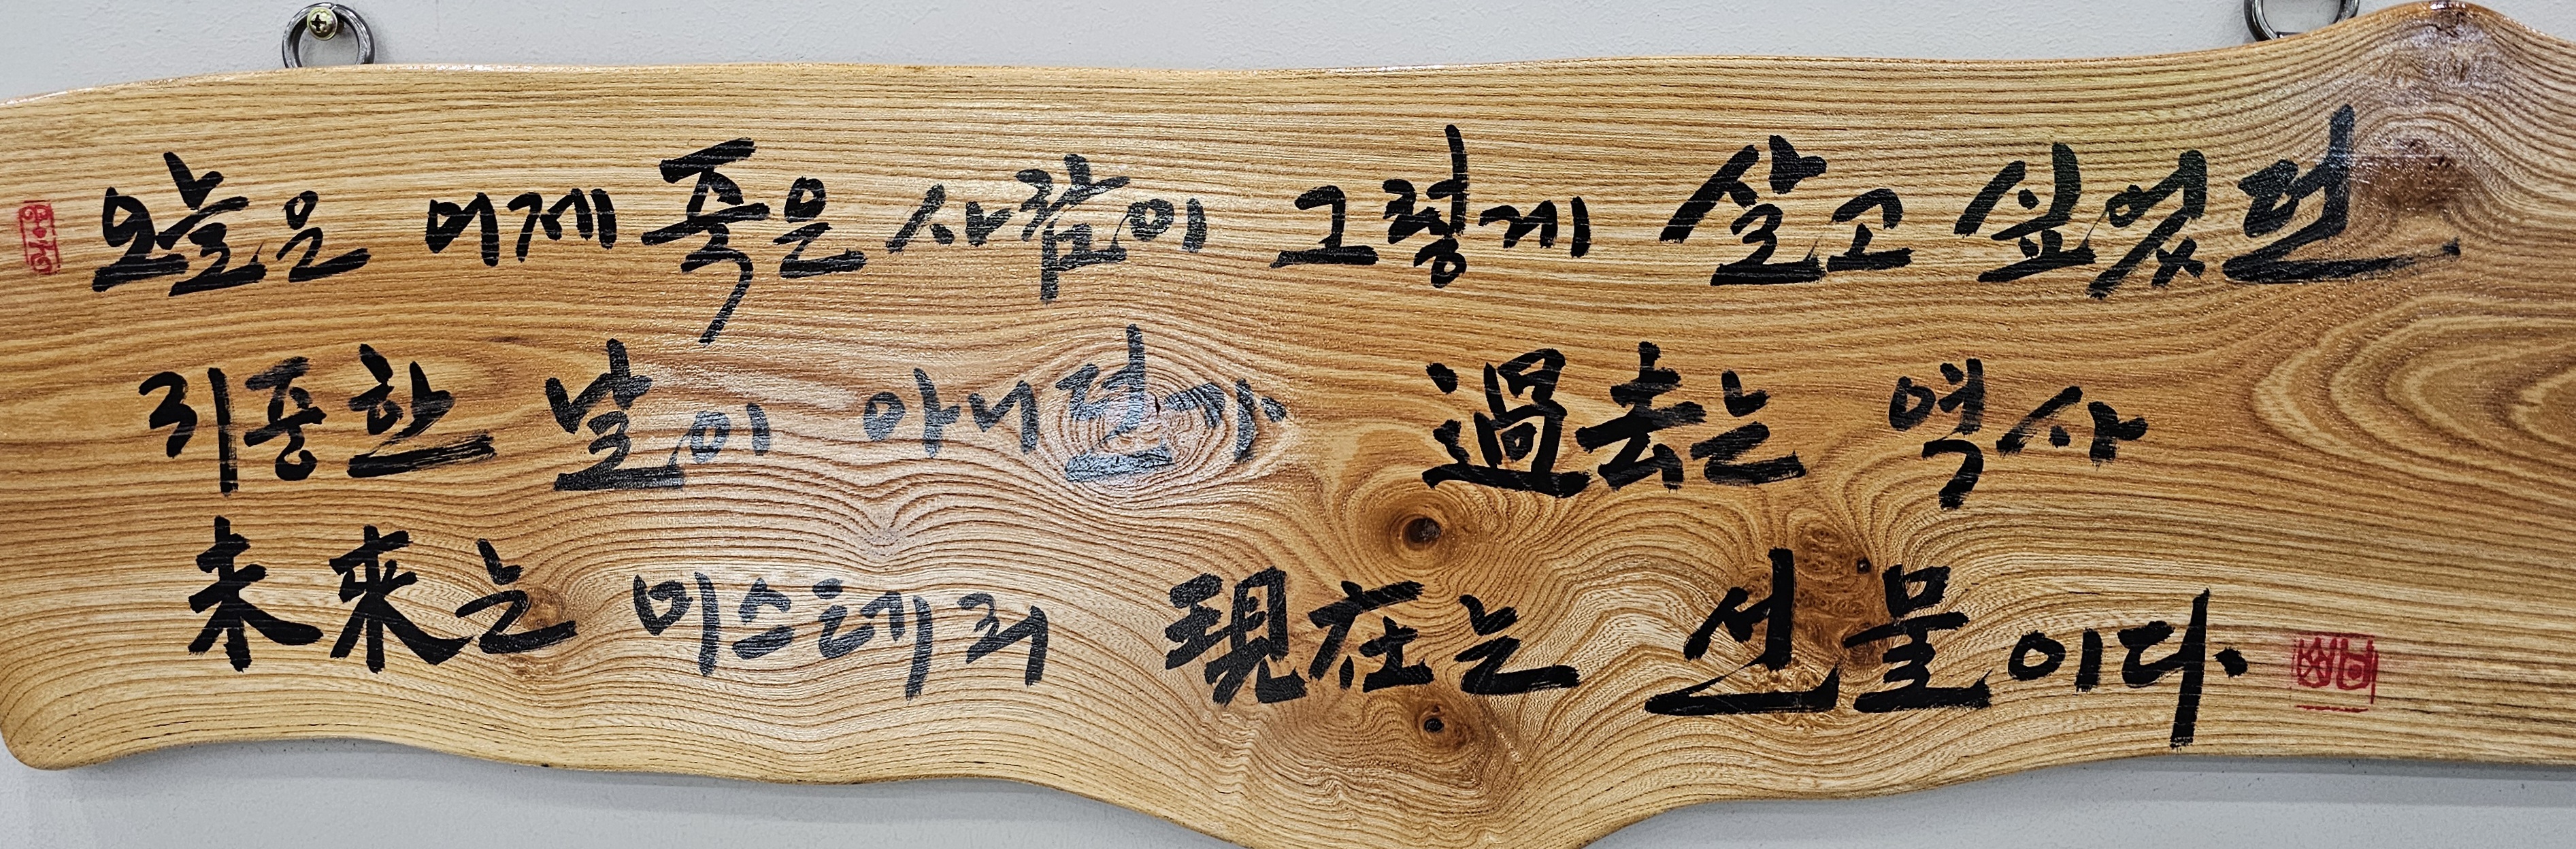 오늘은 어제 죽은 사람이 그렇게 살고 싶었던
귀중한 날이 아니던가 過去는 역사
未來는 미스테리 現在는 선물이다.